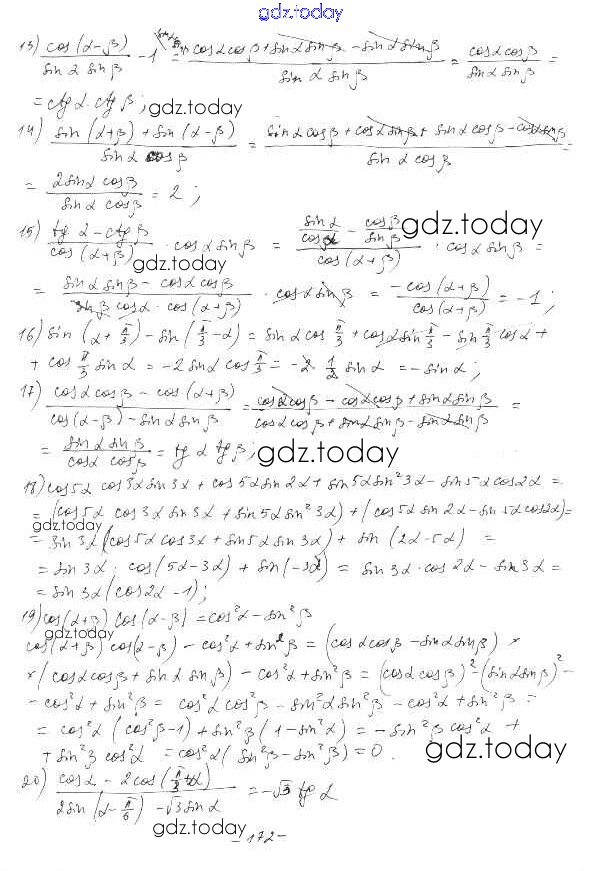 gdz.today
13) cos(α-β)/(sin α sin β) - 1 = (cos α cos β + sin α sin β - sin α sin β)/(sin α sin β) = (cos α cos β)/(sin α sin β) =
= ctg α · ctg β; gdz.today
14) (sin(α+β) + sin(α-β))/(sin α cos β) = (sin α cos β + cos α sin β + sin α cos β - cos α sin β)/(sin α cos β) =
= (2 sin α cos β)/(sin α cos β) = 2;
15) (tg α - ctg β)/cos(α+β) · cos α sin β = (sin α/cos α - cos β/sin β)/cos(α+β) · cos α sin β = gdz.today
gdz.today
= (sin α sin β - cos α cos β)/(sin β cos α · cos(α+β)) · cos α sin β = -cos(α+β)/cos(α+β) = -1;
16) sin(α + π/3) - sin(π/3 - α) = sin α cos π/3 + cos α sin π/3 - sin π/3 cos α +
+ cos π/3 sin α = -2 sin α cos π/3 = -2 · 1/2 sin α = -sin α;
17) (cos α cos β - cos(α+β))/(cos(α-β) - sin α sin β) = (cos α cos β - cos α cos β + sin α sin β)/(cos α cos β + sin α sin β - sin α sin β) =
= (sin α sin β)/(cos α cos β) = tg α tg β; gdz.today
18) cos 5α cos 3α sin 3α + cos 5α sin 2α + sin 5α sin² 3α - sin 5α cos 2α =
= (cos 5α cos 3α sin 3α + sin 5α sin² 3α) + (cos 5α sin 2α - sin 5α cos 2α) =
gdz.today
= sin 3α (cos 5α cos 3α + sin 5α sin 3α) + sin (2α - 5α) =
= sin 3α · cos (5α - 3α) + sin(-3α) = sin 3α · cos 2α - sin 3α =
= sin 3α (cos 2α - 1);
19) cos(α+β) cos(α-β) = cos²α - sin²β
gdz.today
cos(α+β) cos(α-β) - cos²α + sin²β = (cos α cos β - sin α sin β) ×
× (cos α cos β + sin α sin β) - cos²α + sin²β = (cos α cos β)² - (sin α sin β)² -
- cos²α + sin²β = cos²α cos²β - sin²α sin²β - cos²α + sin²β =
= cos²α (cos²β - 1) + sin²β (1 - sin²α) = -sin²β cos²α +
+ sin²β cos²α = cos²α (sin²β - sin²β) = 0. gdz.today
20) (cos α - 2cos(π/3 + α))/(2 sin(α - π/6) - √3 sin α) = -√3 tg α
gdz.today
- 172 -